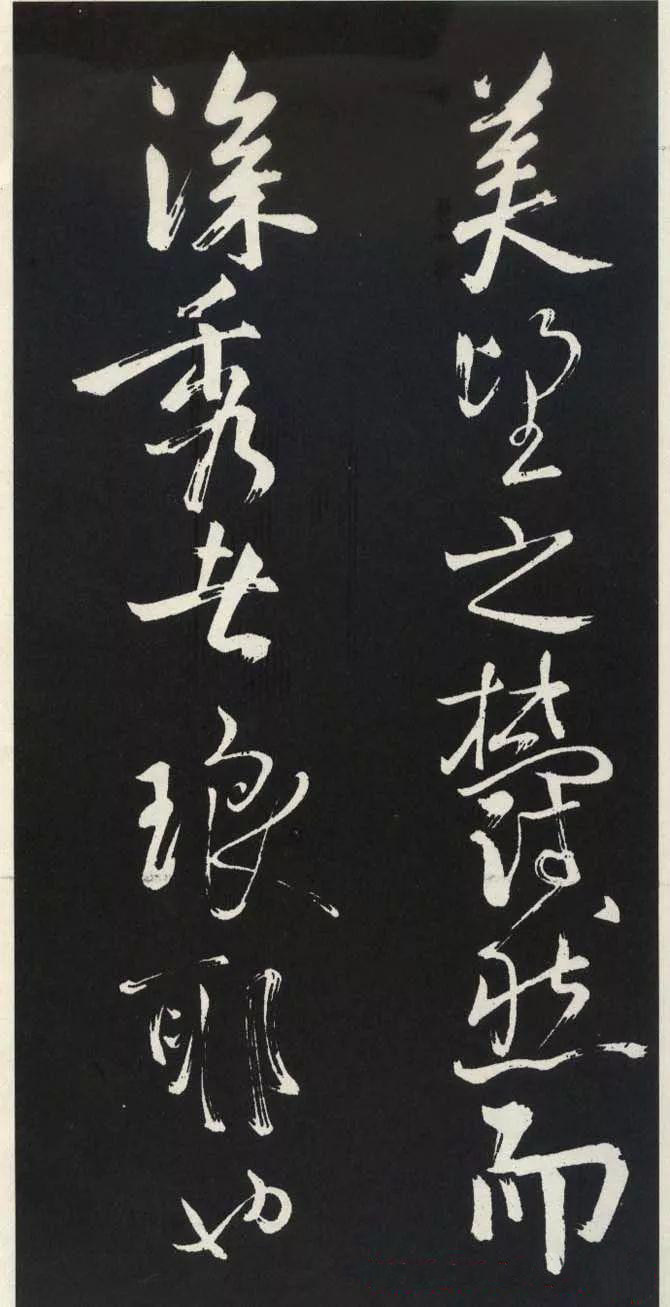 美望之欝然而
深秀者琅耶也